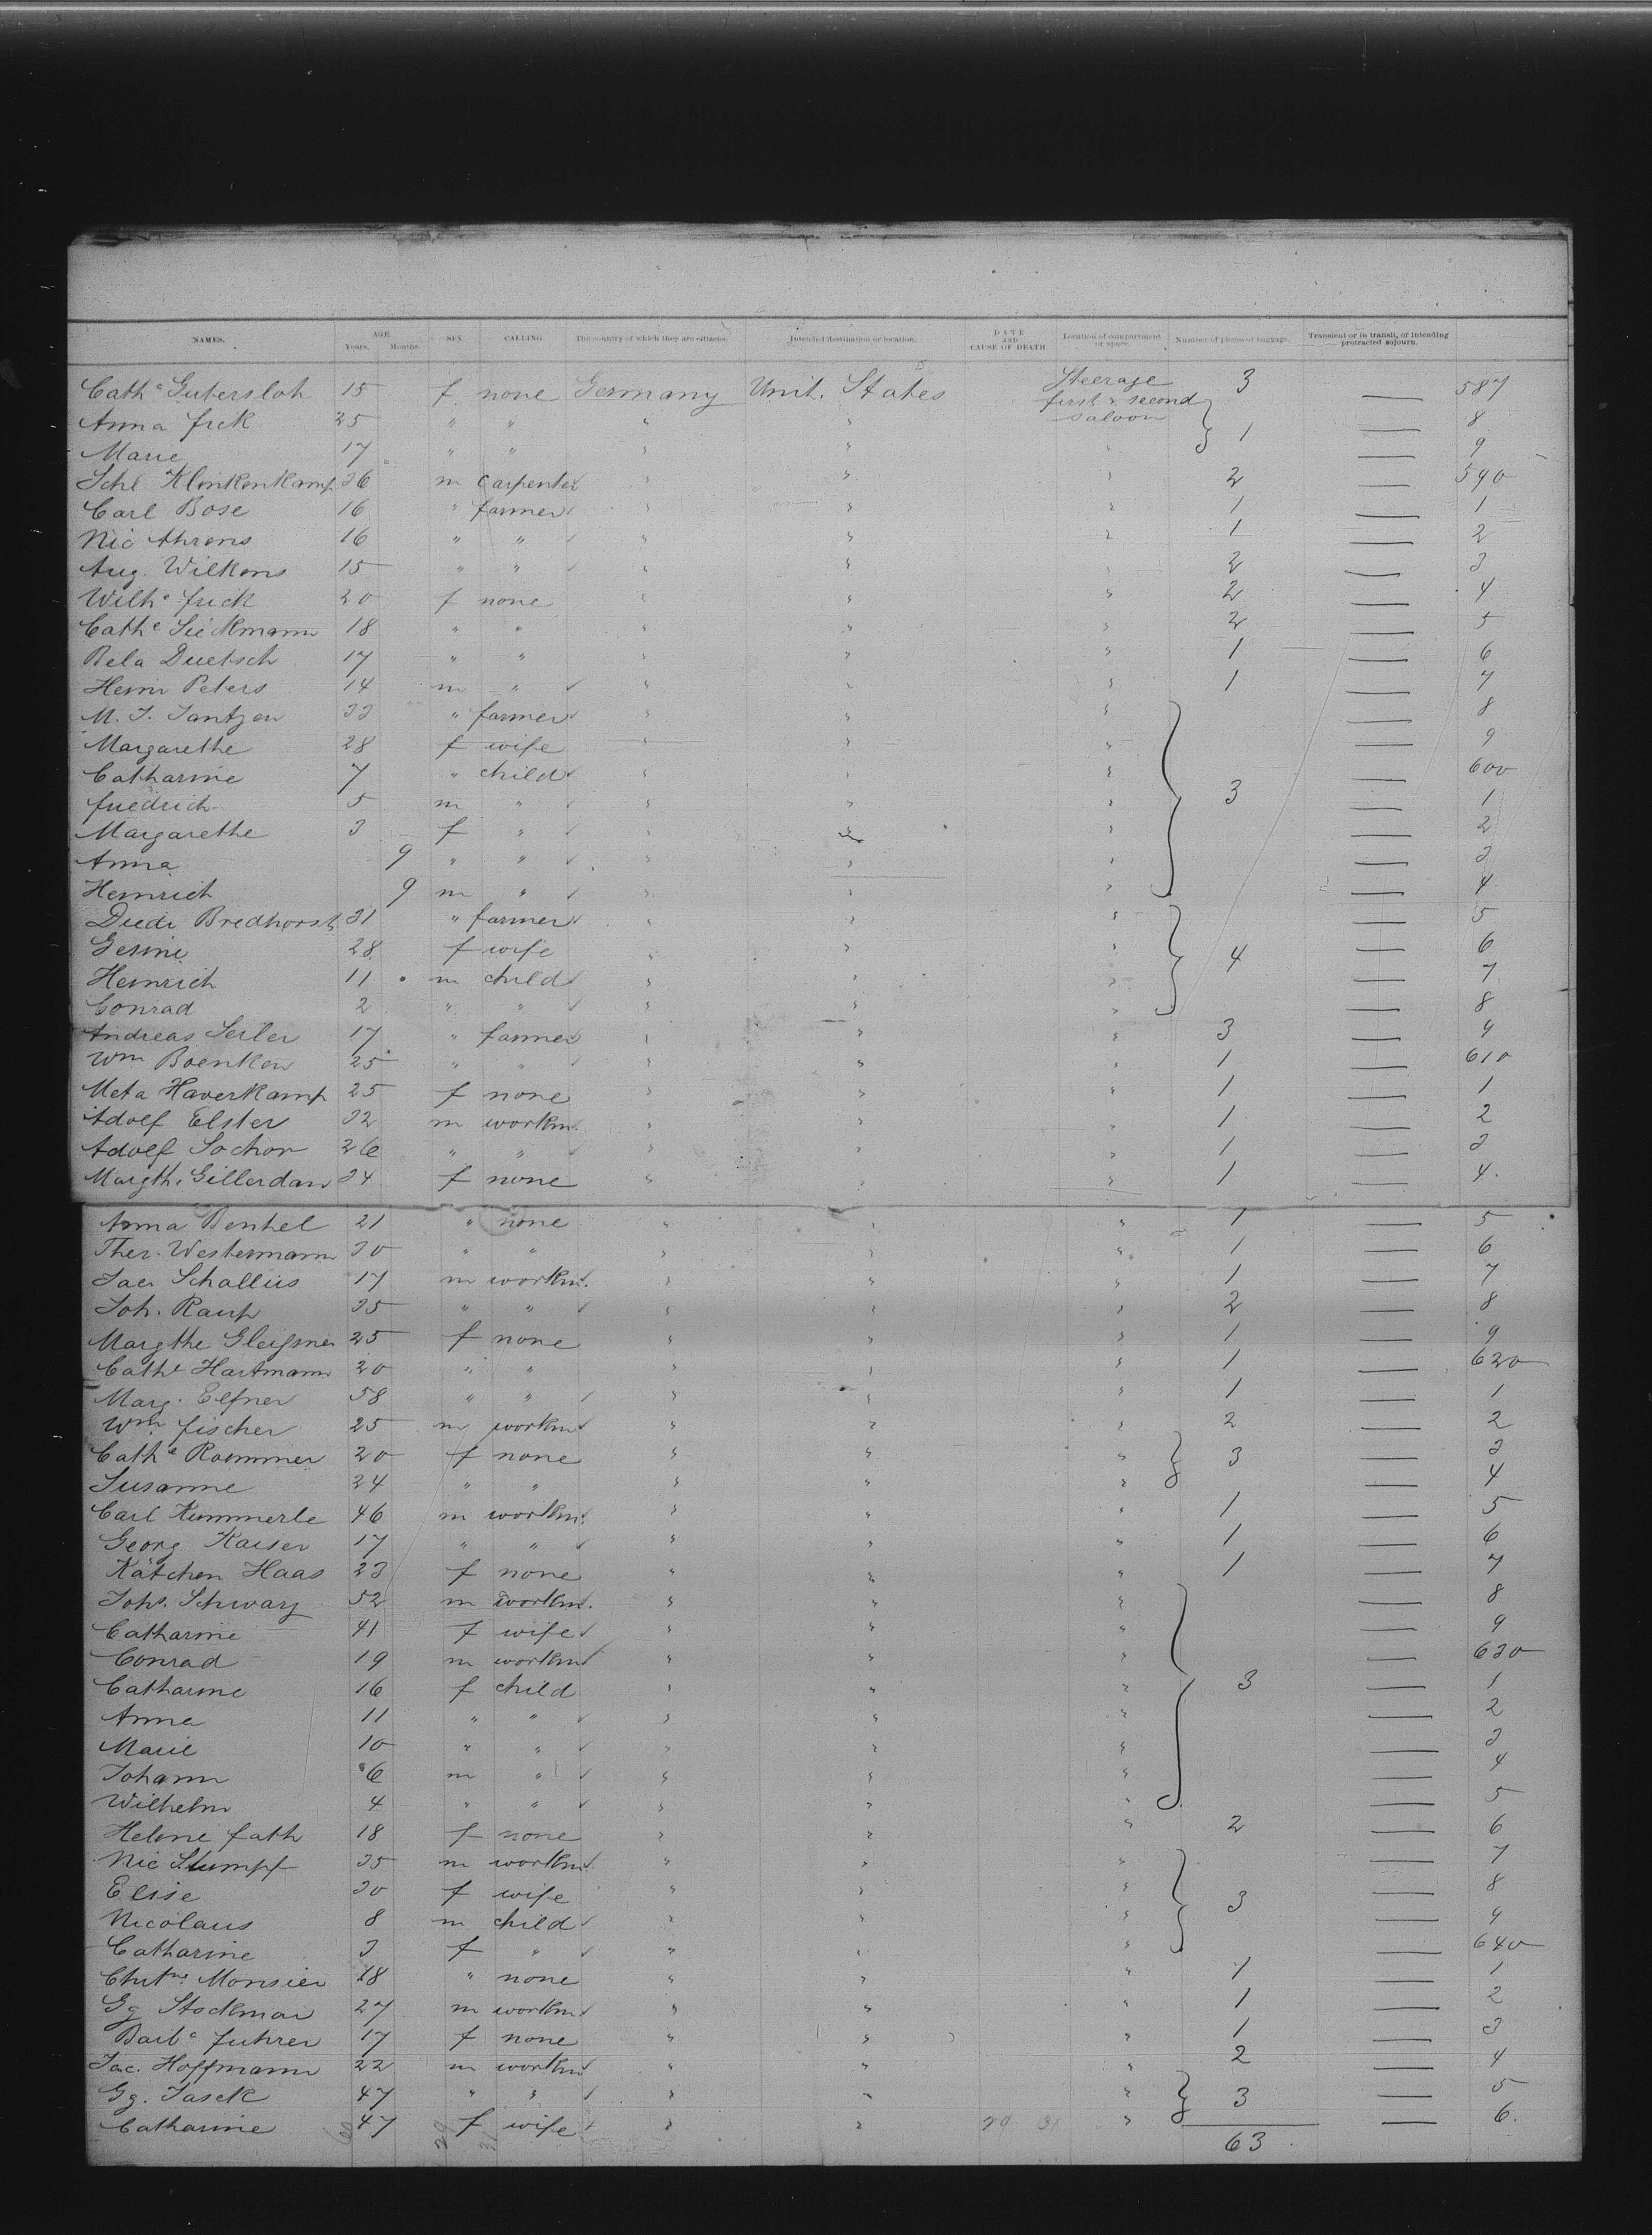 NAMES. AGE. Years. Months. SEX. CALLING. The country of which they are citizens. Intended destination or location. DATE AND CAUSE OF DEATH. Location of compartment or space. Number of pieces of baggage. Transient or in transit, or intending protracted sojourn.
Cathe Gutersloh 15 f none Germany Unit. States Steerage first & second saloon 3 — 587
Anna Frek 25 " " " " 1 — 8
Marie 17 " " " " " — 9
Schl Klinkenkamp 36 m carpenter " " " 2 — 590
Carl Bose 16 " farmer " " " 1 — 1
Nic Ahrens 16 " " " " " 1 — 2
Aug. Wilkens 15 " " " " " 2 — 3
Wilhe Frick 20 f none " " " 2 — 4
Cathe Sieckmann 18 " " " " " 2 — 5
Bela Duetsch 17 " " " " " 1 — 6
Heinr Peters 14 m " " " " 1 — 7
M. J. Jantzen 33 " farmer " " " — 8
Margarethe 28 f wife " " " — 9
Catharine 7 " child " " " — 600
Friedrich 5 m " " " " 3 — 1
Margarethe 3 f " " " " — 2
Anna 9 " " " " " — 3
Heinrich 9 m " " " " — 4
Diedr Bredhorst 31 " farmer " " " — 5
Gesine 28 f wife " " " 4 — 6
Heinrich 11 m child " " " — 7
Conrad 2 " " " " " — 8
Andreas Seiler 17 " farmer " " " 3 — 9
Wm Boenken 25 " " " " " 1 — 610
Meta Haverkamp 25 f none " " " 1 — 1
Adolf Elster 32 m workm. " " " 1 — 2
Adolf Sochor 26 " " " " " 1 — 3
Margth. Gillerdan 34 f none " " " 1 — 4.
Anna Benhel 21 " none " " " 1 — 5
Ther. Westermann 30 " " " " " 1 — 6
Jac Schallus 17 m workm. " " " 1 — 7
Joh. Raup 35 " " " " " 2 — 8
Margthe Gleißner 25 f none " " " 1 — 9
Cathe Hartmann 20 " " " " " 1 — 620
Marg. Elfner 58 " " " " " 1 — 1
Wm. Fischer 25 m workm " " " 2 — 2
Cathe Roemmer 20 f none " " " 3 — 3
Susanne 24 " " " " " — 4
Carl Kummerle 46 m workm. " " " 1 — 5
Georg Kaiser 17 " " " " " 1 — 6
Kätchen Haas 23 f none " " " 1 — 7
Johs. Schwarz 52 m workm. " " " — 8
Catharine 41 f wife " " " — 9
Conrad 19 m workm " " " — 630
Catharine 16 f child " " " 3 — 1
Anna 11 " " " " " — 2
Marie 10 " " " " " — 3
Johann 6 m " " " " — 4
Wilhelm 4 " " " " " — 5
Helene Fath 18 f none " " " 2 — 6
Nic Stumpf 35 m workm " " " — 7
Elise 30 f wife " " " 3 — 8
Nicolaus 8 m child " " " — 9
Catharine 3 f " " " " — 640
Chrtne. Monsier 18 " none " " " 1 — 1
Gg Stockmar 27 m workm " " " 1 — 2
Barbe Fuhrer 17 f none " " " 1 — 3
Jac. Hoffmann 22 m workm " " " 2 — 4
Gg. Jasek 47 " " " " " 3 — 5
Catharine 47 f wife " " 29 31 " — 6.
63